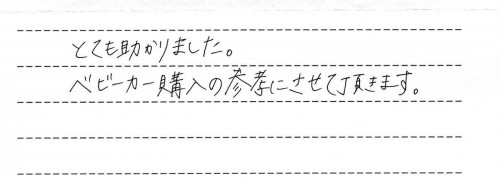 とても助かりました。
ベビーカー購入の参考にさせて頂きます。